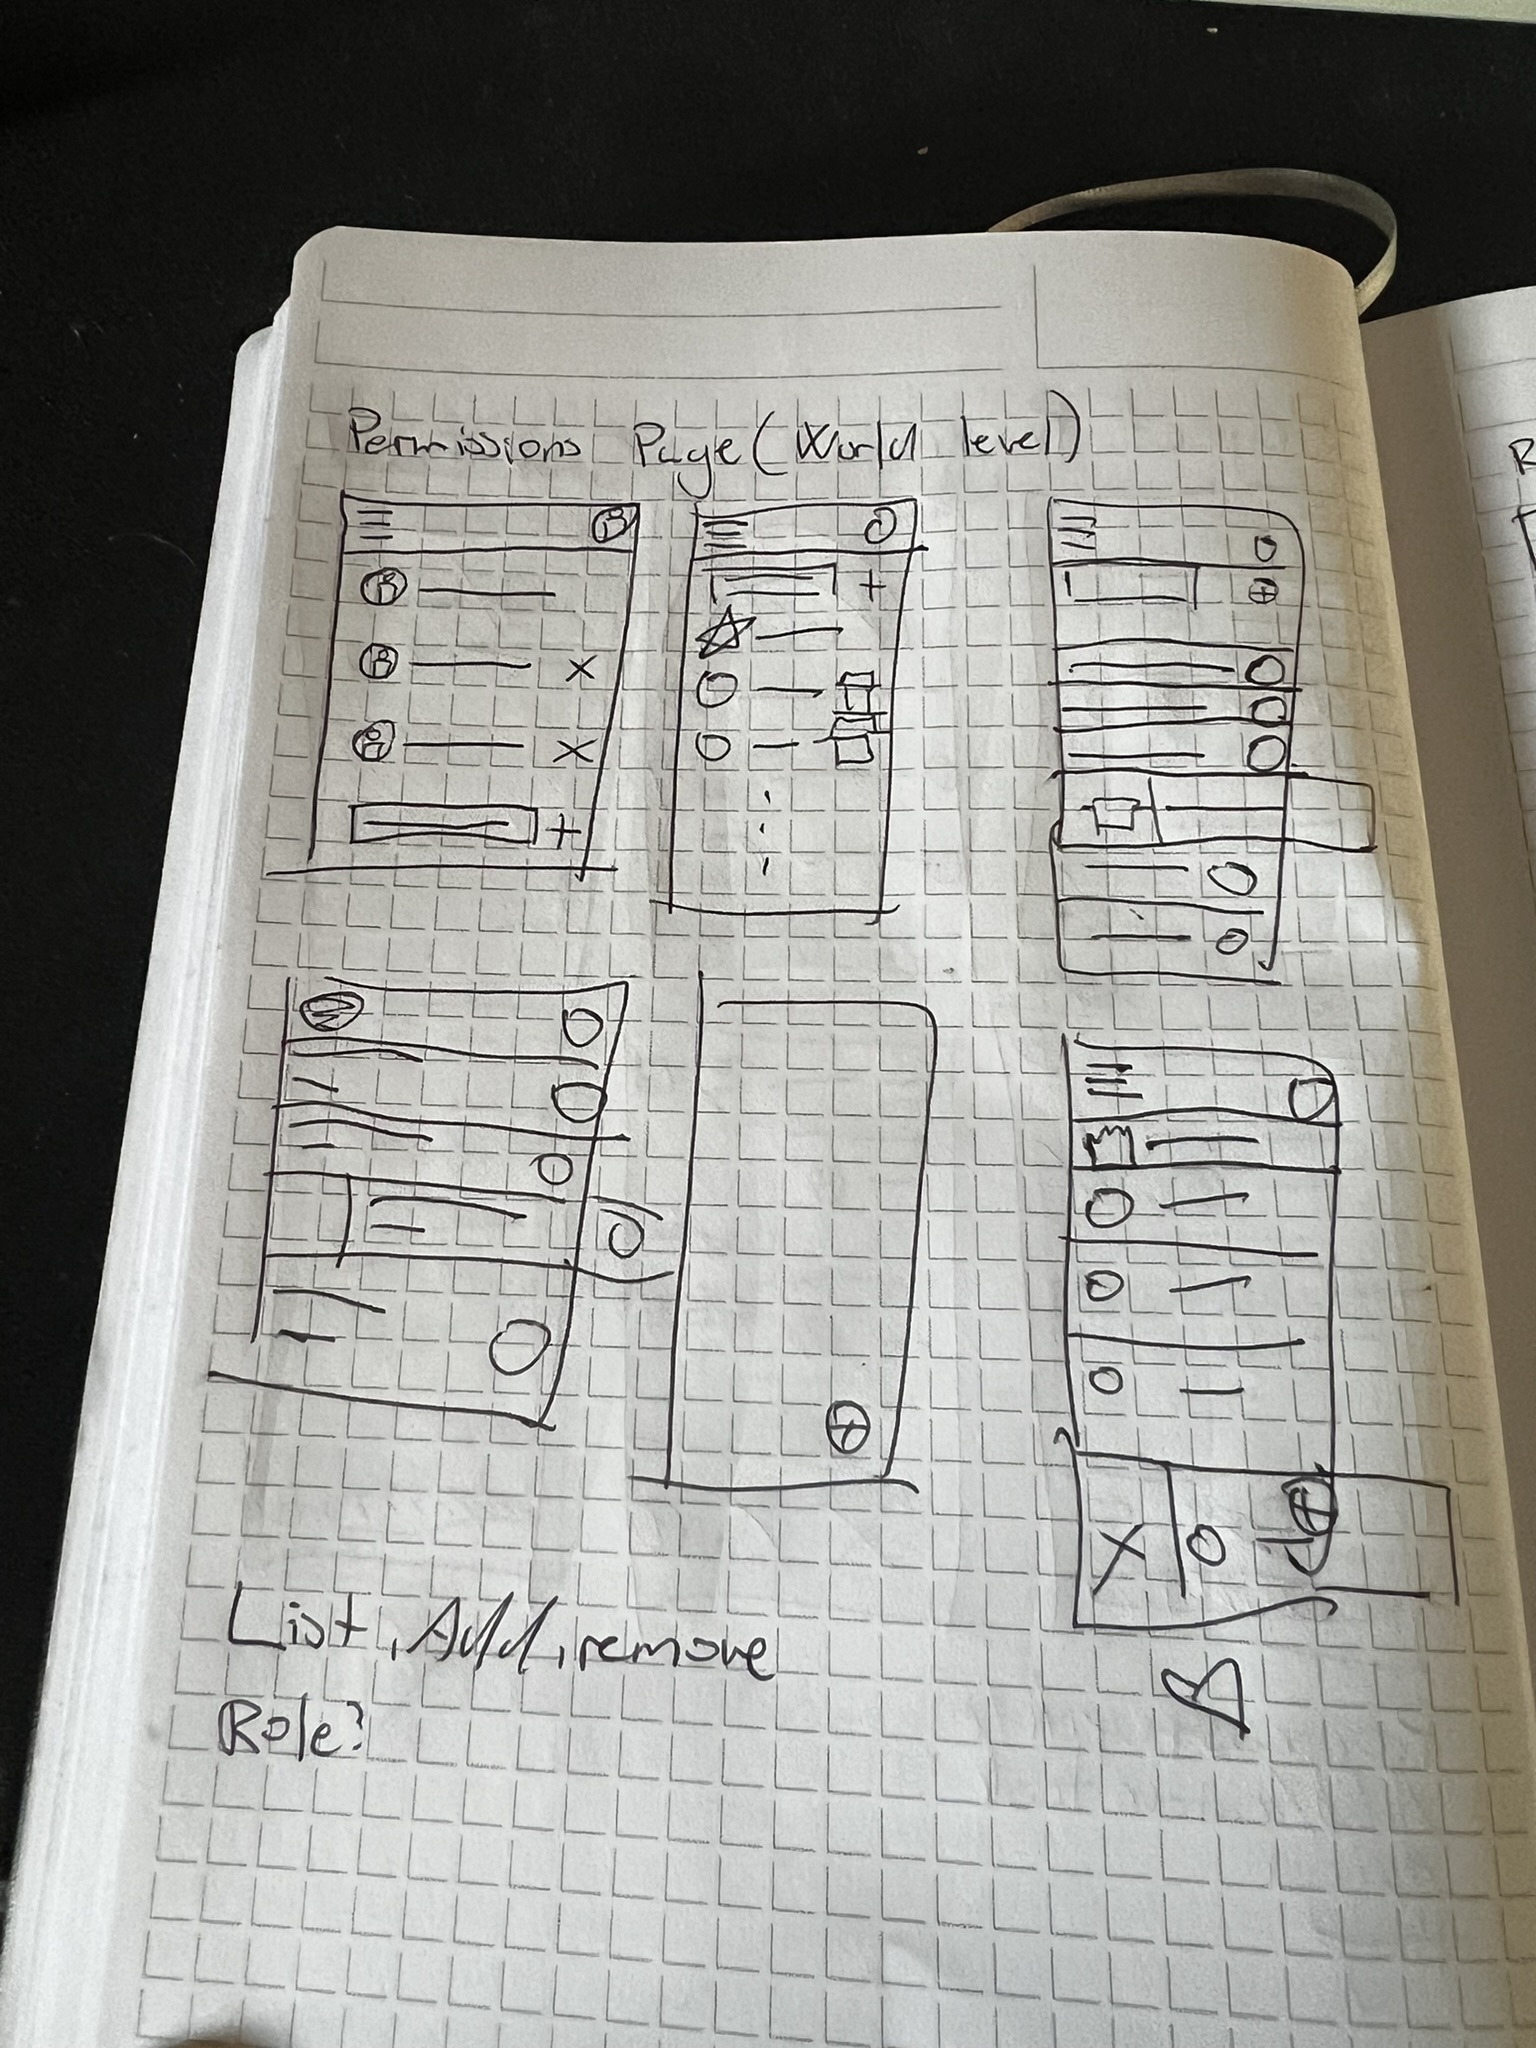 Permissions Page (World level)
List, Add, remove
Role?